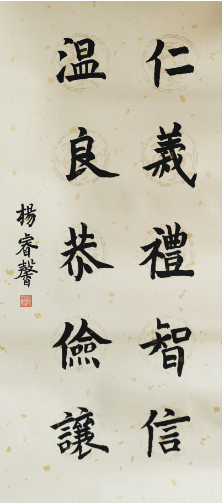 仁義禮智信
温良恭儉讓
楊睿馨